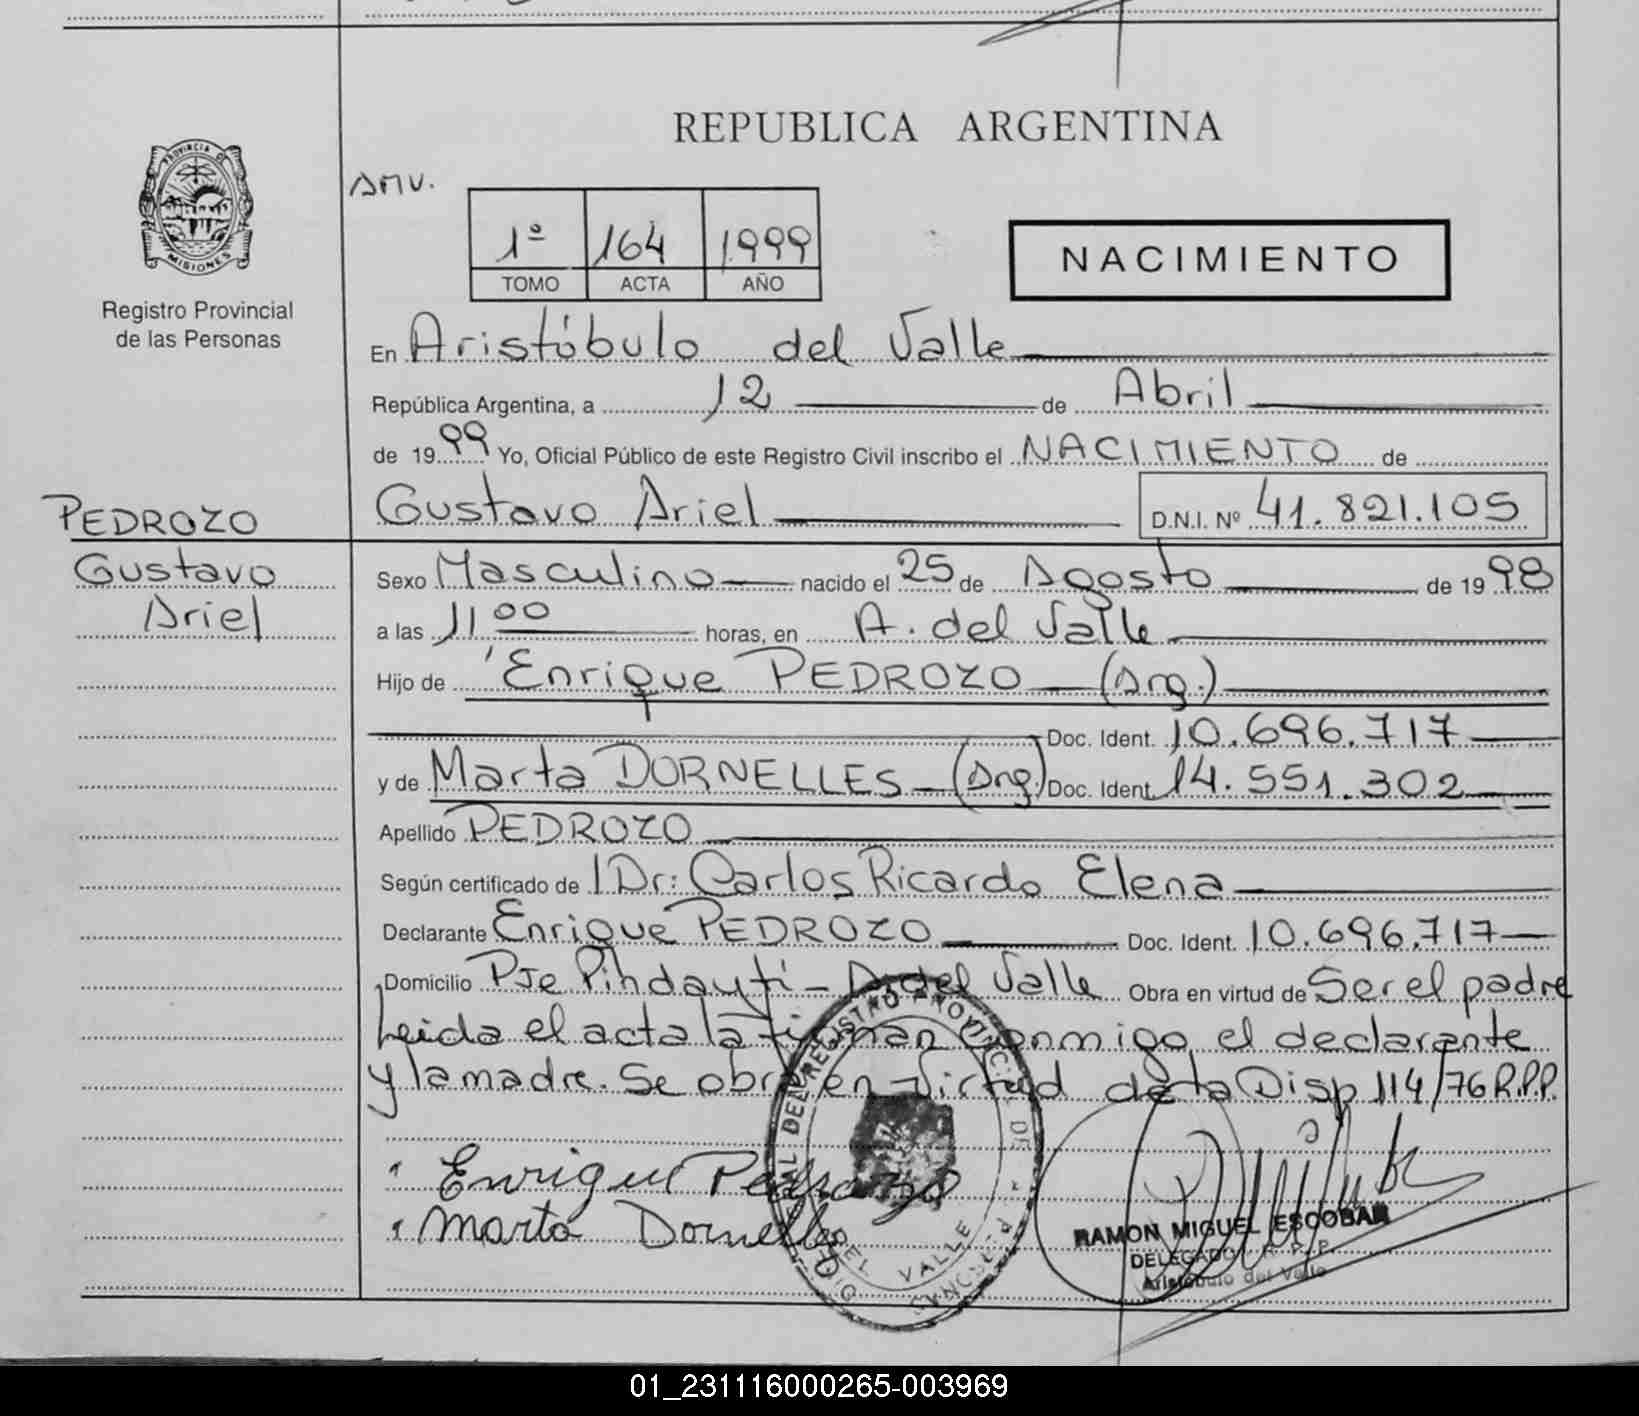 REPUBLICA ARGENTINA
PROVINCIA DE
MISIONES
Registro Provincial
de las Personas
AMV.
1º 164 1999
TOMO ACTA AÑO
NACIMIENTO
En Aristóbulo del Valle
República Argentina, a 12 de Abril
de 1999 Yo, Oficial Público de este Registro Civil inscribo el NACIMIENTO de
PEDROZO
Gustavo Ariel D.N.I. Nº 41.821.105
Gustavo
Ariel
Sexo Masculino nacido el 25 de Agosto de 1998
a las 11 00 horas, en A. del Valle
Hijo de Enrique PEDROZO (Arg.)
Doc. Ident. 10.696.717
y de Marta DORNELLES (Arg.) Doc. Ident. 14.551.302
Apellido PEDROZO
Según certificado de Dr: Carlos Ricardo Elena
Declarante Enrique PEDROZO Doc. Ident. 10.696.717
Domicilio Pje Pindaytí - A. del Valle Obra en virtud de Ser el padre
Leida el acta la firman conmigo el declarante
y la madre. Se obra en virtud de la Disp 114/76 R.P.P.
Enrique Pedrozo
Marta Dornelles
REGISTRO PROVINCIAL DE
DEL VALLE
RAMON MIGUEL ESCOBAR
DELEGADO R. P. P.
Aristóbulo del Valle
01_231116000265-003969